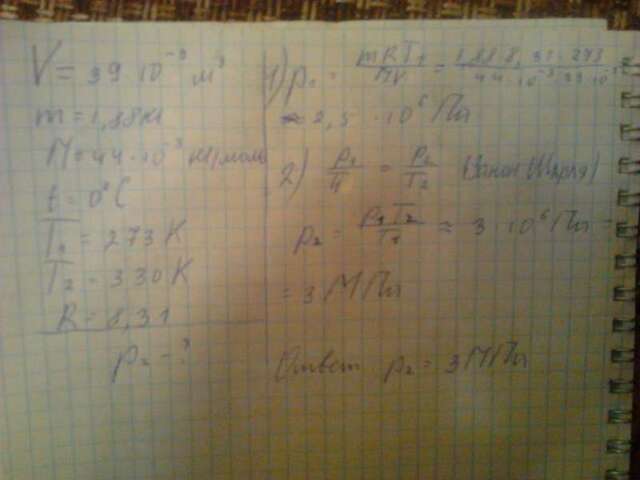 V = 39 · 10⁻³ м³
m = 1,88 кг
M = 44 · 10⁻³ кг/моль
t = 0°C
T₁ = 273 K
T₂ = 330 K
R = 8,31
p₂ - ?
1) p₁ = mRT₁/MV = 1,88 · 8,31 · 273/44 · 10⁻³ · 39 · 10⁻³
≈ 2,5 · 10⁶ Па
2) p₁/T₁ = p₂/T₂ (Закон Шарля)
p₂ = p₁T₂/T₁ ≈ 3 · 10⁶ Па =
= 3 МПа
Ответ p₂ = 3 МПа